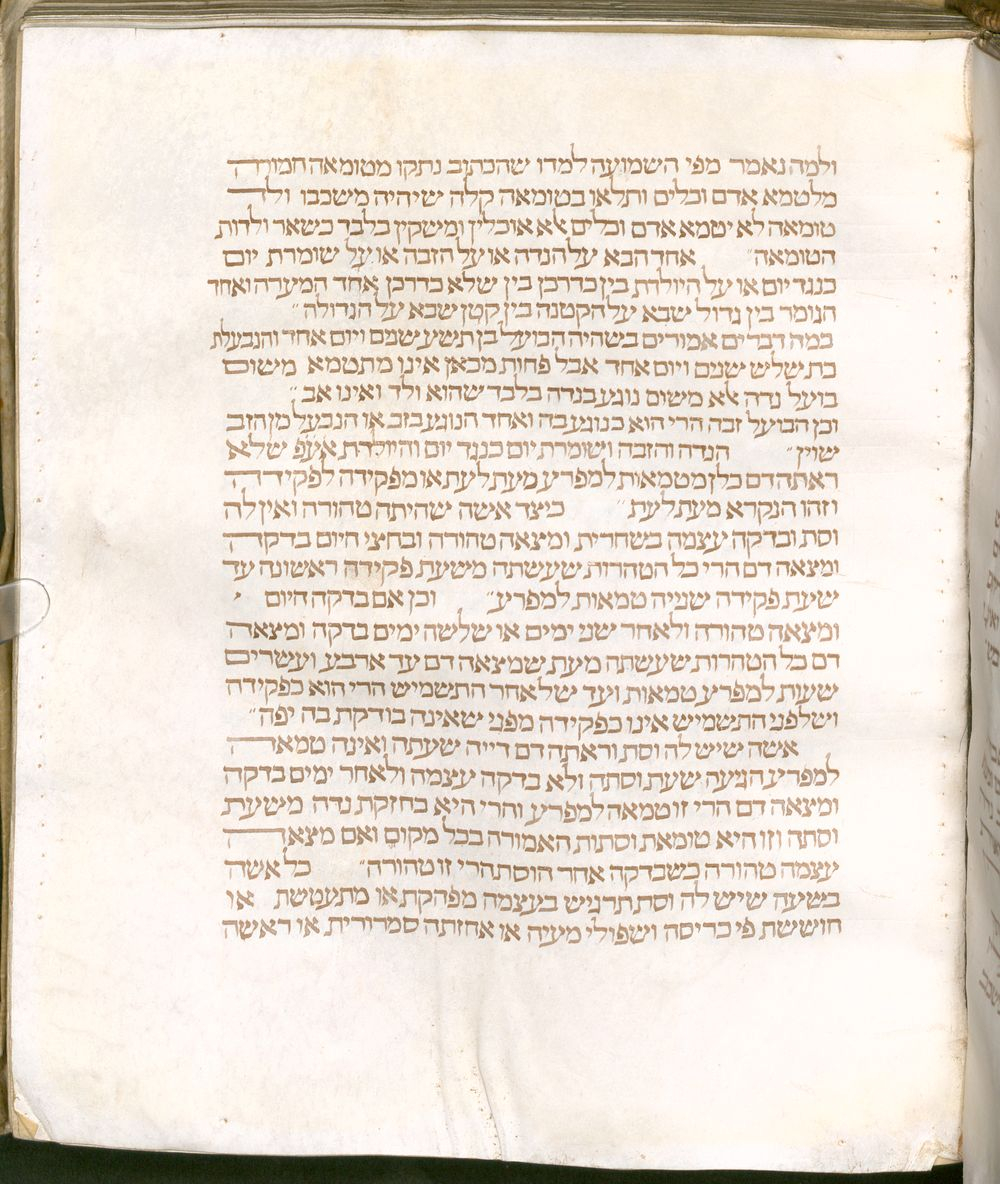 ולמה נאמר מפי השמועה למדו שהכתוב נתקו מטומאה חמורה
מלטמא אדם וכלים ותלאו בטומאה קלה שיהיה משכבו ולד
טומאה לא יטמא אדם וכלים אלא אוכלין ומשקין בלבד כשאר ולדות
הטומאה״ אחד הבא על הנדה או על הזבה או על שומרת יום
כנגד יום או על היולדת בין כדרכן בין שלא כדרכן אחד המערה ואחד
הגומר בין גדול שבא על הקטנה בין קטן שבא על הגדולה״
במה דברים אמורים בשהיה הבועל בן תשע שנים ויום אחד והנבעלת
בת שלש שנים ויום אחד אבל פחות מכאן אינו מתטמא משום
בועל נדה אלא משום נוגע בנדה בלבד שהוא ולד ואינו אב״
וכן הבועל זבה הרי הוא כנוגע בה ואחד הנוגע בזב או הנבעל מן הזב
שוין״ הנדה והזבה ושומרת יום כנגד יום והיולדת אע״פ שלא
ראתה דם כלן מטמאות למפרע מעת לעת או מפקידה לפקידה
וזהו הנקרא מעת לעת״ כיצד אשה שהיתה טהורה ואין לה
וסת ובדקה עצמה בשחרית ומצאה טהורה ובחצי היום בדקה
ומצאה דם הרי כל הטהרות שעשתה משעת פקידה ראשונה עד
שעת פקידה שנייה טמאות למפרע״ וכן אם בדקה היום
ומצאה טהורה ולאחר שני ימים או שלשה ימים בדקה ומצאה
דם כל הטהרות שעשתה מעת שמצאה דם עד ארבע ועשרים
שעות למפרע טמאות ועד שלאחר התשמיש הרי הוא כפקידה
ושלפני התשמיש אינו כפקידה מפני שאינה בודקת בה יפה״
אשה שיש לה וסת וראתה דם דייה שעתה ואינה טמאה
למפרע הגיעה שעת וסתה ולא בדקה עצמה ולאחר ימים בדקה
ומצאה דם הרי זו טמאה למפרע והרי היא בחזקת נדה משעת
וסתה וזו היא טומאת וסתות האמורה בכל מקום ואם מצאה
עצמה טהורה כשבדקה אחר הוסת הרי זו טהורה״ כל אשה
בשעה שיש לה וסת תרגיש בעצמה מפהקת או מתעטשת או
חוששת פי כריסה ושפולי מעיה או אחזתה סמרורית או ראשה